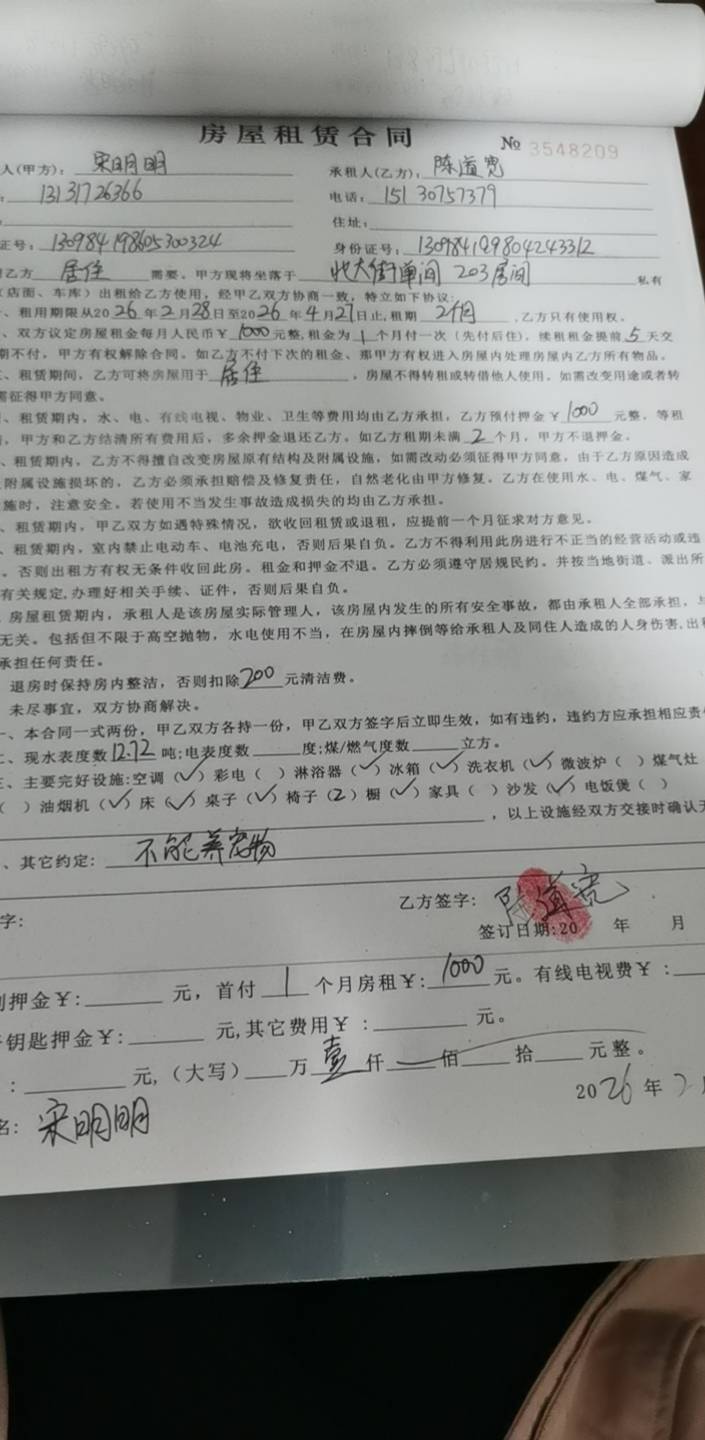 房屋租赁合同 № 3548209
人(甲方)：宋明明 承租人(乙方)：陈道宽
：13131726366 电话：15130757379
住址：
证号：130984198605300324 身份证号：130984199804243312
乙方 居住 需要，甲方现将坐落于 北大街单间 203房间 私有
(店面、车库）出租给乙方使用，经甲乙双方协商一致，特立如下协议：
、租用期限从2026年2月28日至2026年4月27日止,租期 2个月 ,乙方只有使用权。
、双方议定房屋租金每月人民币￥1000元整,租金为1个月付一次（先付后住），续租租金提前5天交
期不付，甲方有权解除合同。如乙方不付下次的租金、那甲方有权进入房屋内处理房屋内乙方所有物品。
、租赁期间，乙方可将房屋用于 居住 ，房屋不得转租或转借他人使用。如需改变用途或者转
需征得甲方同意。
、租赁期内，水、电、有线电视、物业、卫生等费用均由乙方承担，乙方预付押金￥1000元整，等租
，甲方和乙方结清所有费用后，多余押金退还乙方。如乙方租期未满2个月，甲方不退押金。
、租赁期内，乙方不得擅自改变房屋原有结构及附属设施，如需改动必须征得甲方同意，由于乙方原因造成
附属设施损坏的，乙方必须承担赔偿及修复责任，自然老化由甲方修复。乙方在使用水、电、煤气、家
施时，注意安全。若使用不当发生事故造成损失的均由乙方承担。
、租赁期内，甲乙双方如遇特殊情况，欲收回租赁或退租，应提前一个月征求对方意见。
、租赁期内，室内禁止电动车、电池充电，否则后果自负。乙方不得利用此房进行不正当的经营活动或违
。否则出租方有权无条件收回此房。租金和押金不退。乙方必须遵守居规民约。并按当地街道、派出所
有关规定,办理好相关手续、证件，否则后果自负。
房屋租赁期内，承租人是该房屋实际管理人，该房屋内发生的所有安全事故，都由承租人全部承担，
无关。包括但不限于高空抛物，水电使用不当，在房屋内摔倒等给承租人及同住人造成的人身伤害,出
承担任何责任。
退房时保持房内整洁，否则扣除200元清洁费。
未尽事宜，双方协商解决。
一、本合同一式两份，甲乙双方各持一份，甲乙双方签字后立即生效，如有违约，违约方应承担相应责
二、现水表度数1272吨;电表度数 度;煤/燃气度数 立方。
三、主要完好设施:空调（✓）彩电（ ）淋浴器（✓）冰箱（✓）洗衣机（✓）微波炉（ ）煤气灶
（ ）油烟机（✓）床（✓）桌子（✓）椅子（2）橱（✓）家具（ ）沙发（✓）电饭煲（ ）
，以上设施经双方交接时确认
、其它约定：不能养宠物
字： 乙方签字：陈道宽
签订日期:20 年 月
押金￥: 元，首付 1 个月房租￥:1000元。有线电视费￥：
钥匙押金￥: 元,其它费用￥： 元。
： 元,（大写） 万壹仟 佰 拾 元整。
2026年2
名：宋明明